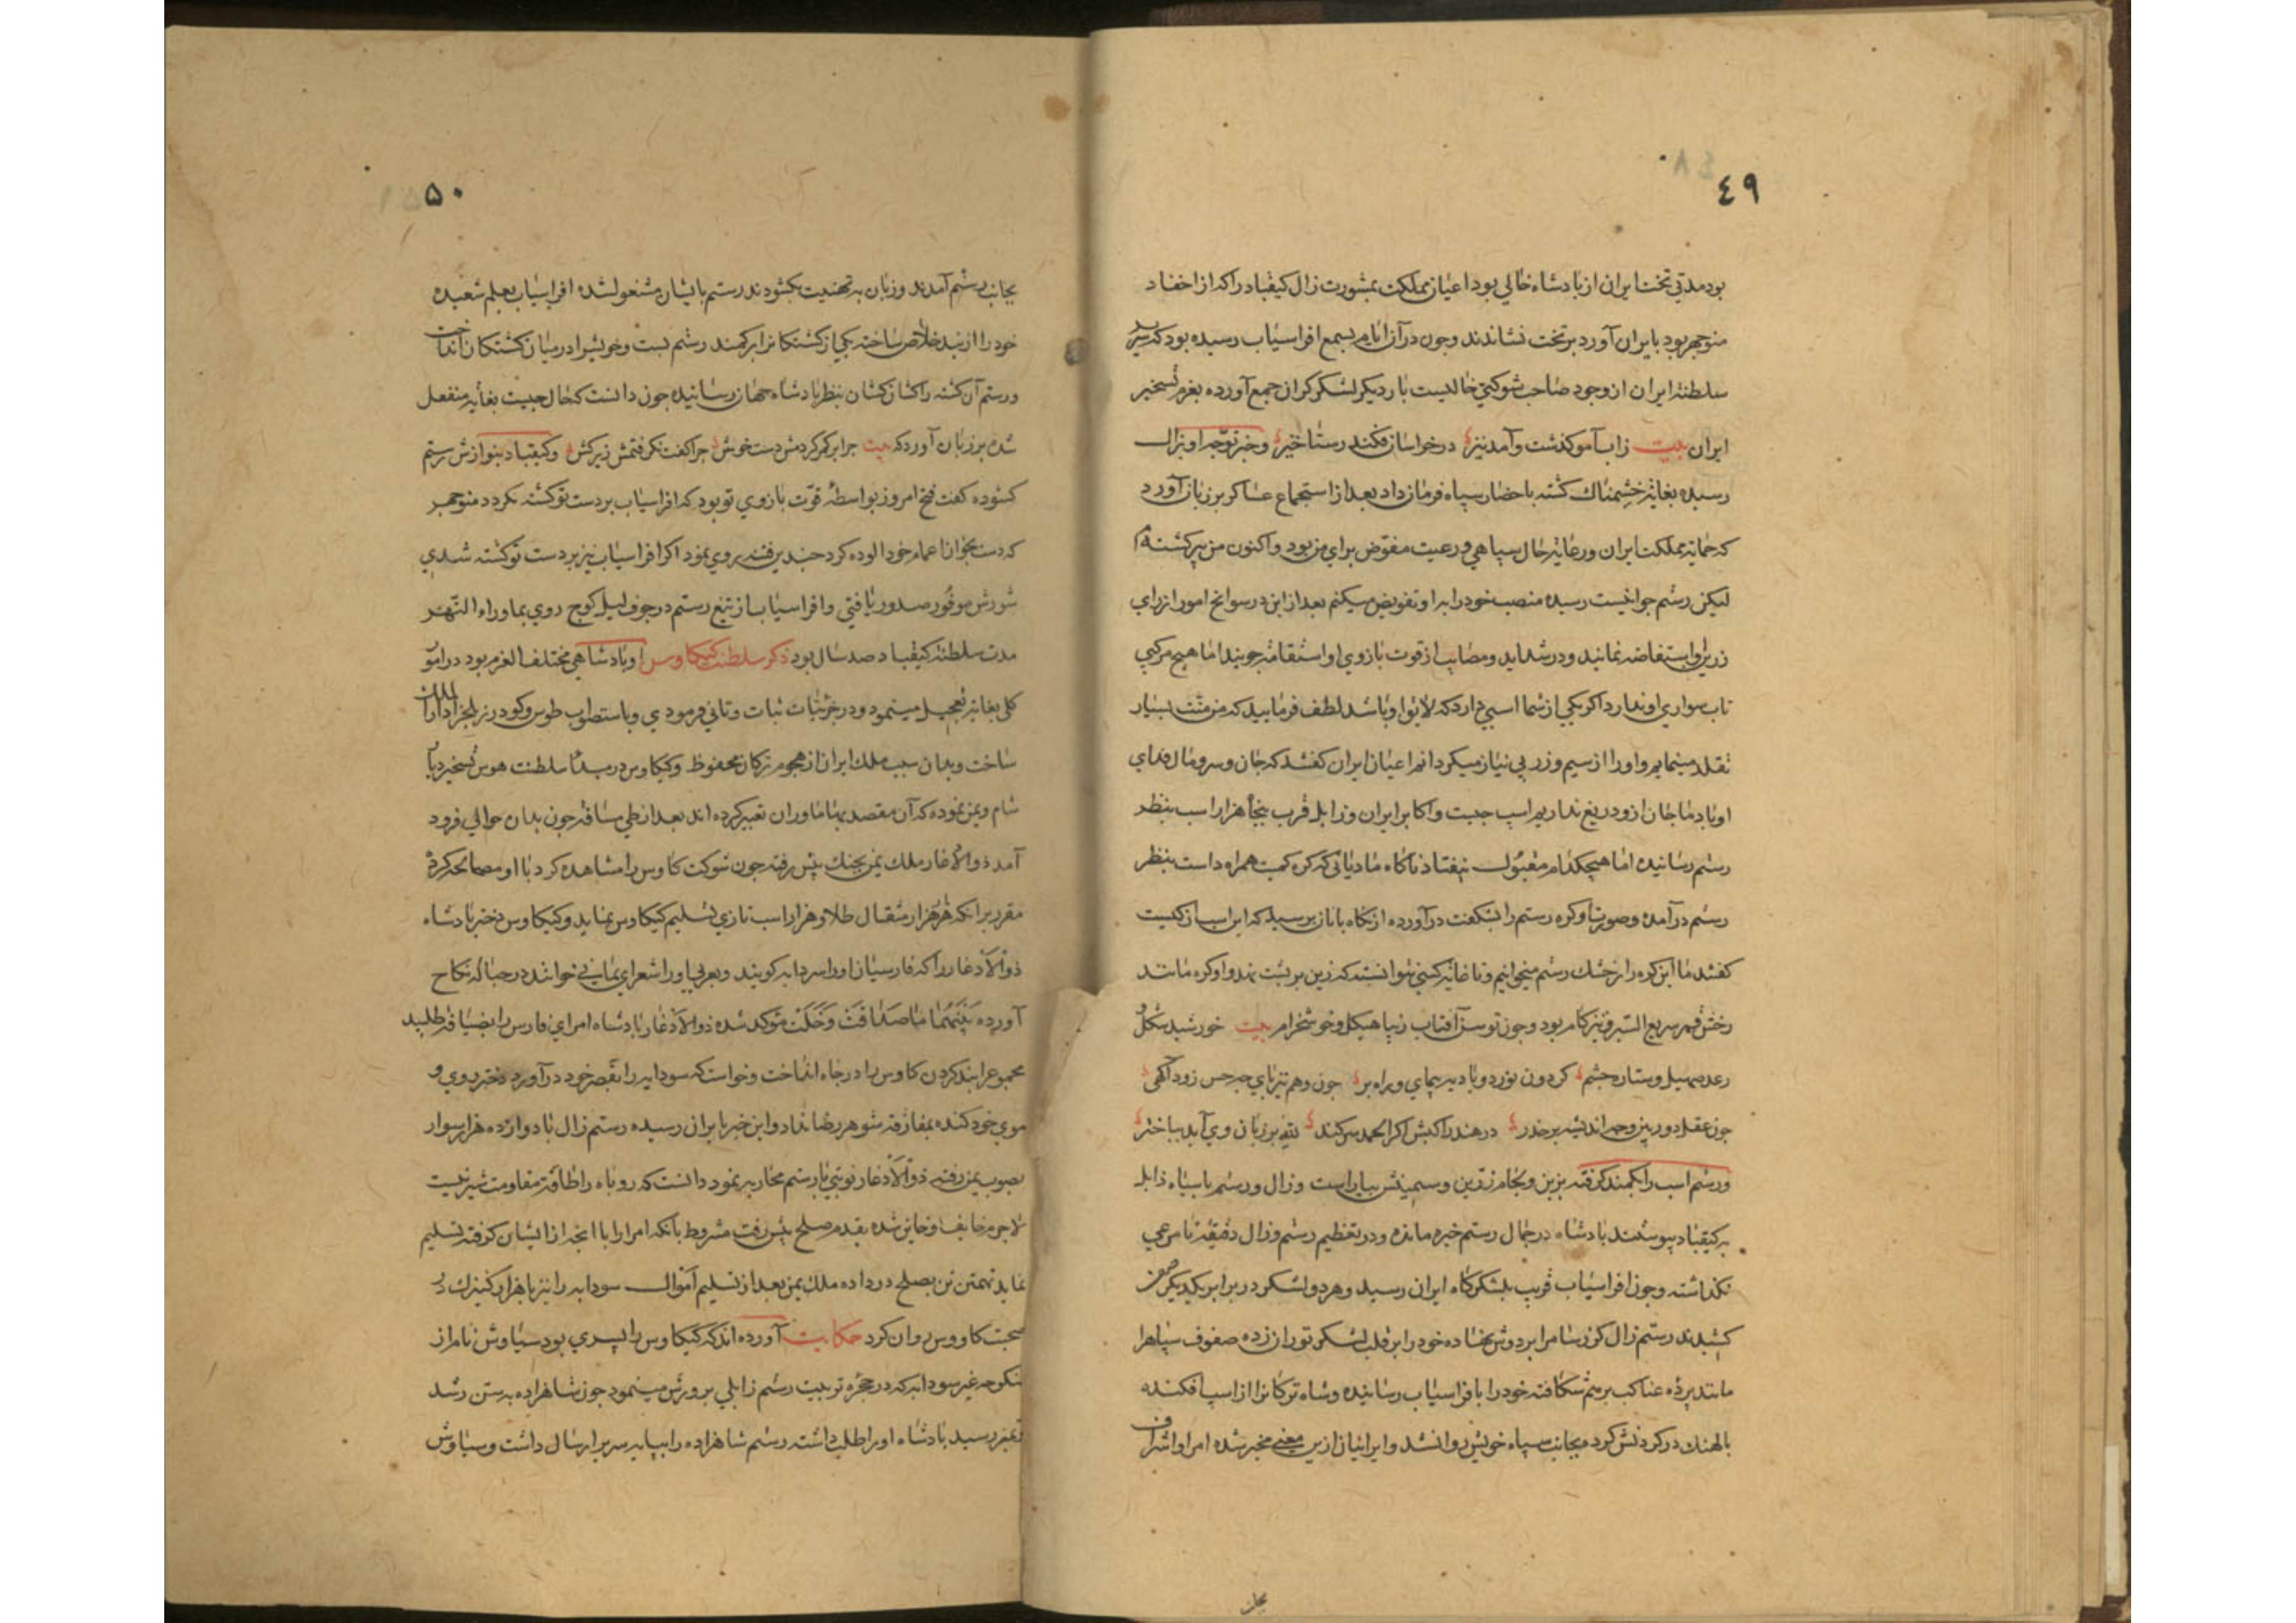 ٤٩
بود مدتی تخت ایران از پادشاه خالی بود اعیان مملکت بمشورت زال کیقباد را که از احفاد
منوچهر بود بایران آورد برتخت نشاندند وچون درآن ایام بسمع افراسیاب رسیده بود که سریر
سلطنة ایران از وجود صاحب شوکتی خالیست بار دیگر لشکر گران جمع آورده بعزم تسخیر
ایران بیت زاب آمو گذشت وآمد تیز درخراسان فکند رستاخیز وخبر توجه او بزال
رسیده بغایة خشمناک گشته باحضار سپاه فرمان داد بعد از استجماع عساکر برزبان آورد
که حمایة مملکت ایران ورعایة حال سپاهی ورعیت مفوّض برای من بود واکنون من پیر گشته‌ام
لیکن رستم جوانیست رسیده منصب خود را بدو تفویض میکنم بعد از این در سوانح امور از رای
زرین او استفاضه نمایند ودر شداید ومصایب از قوت بازوی او استقامة جویند اما هیچ مرکبی
تاب سواری او ندارد اگر یکی از شما اسبی دارد که لایق او باشد لطف فرمایید که من منت بسیار
تقلد مینمایم واو را از سیم وزر بی نیاز میگردانم اعیان ایران گفتند که جان وسر ومال فدای
او باد ما جان ازو دریغ نداریم اسپ چیست واکابر ایران وزابل قرب پنجاه هزار اسب بنظر
رستم رسانیده اما هیچکدام مقبول نیفتاد ناگاه مادیانی که کره کمیت همراه داشت بنظر
رستم درآمده وصورت او کره رستم را بشگفت درآورده از نگاه بانان پرسید که این اسب از کیست
گفتند ما این کره را رخش رستم میخوانیم وتا غایة کسی نتوانسته که زین بر پشت نهد واو کره مانند
رخش قمر سریع السیر وتیزگام بود وچون توسن آفتاب زیبا هیکل وخوشخرام بیت خورشید شکل
رعد صهیل وستاره چشم گردون نورد وبادیه پیمای وراه بر چون وهم تیزپای چو حس زود آگهی
چون عقل دوربین وچو اندیشه پرخدر در هند راکبش اگر الحمد سر کند برزبان وی آید بباختر
ورستم اسب را بکمند گرفته بزین ولجام زرّین وسیمینش بیاراست وزال ورستم با سپاه زابل
به کیقباد پیوستند پادشاه در جمال رستم خیره مانده ودر تعظیم رستم وزال دقیقة نامرعی
نگذاشته وچون افراسیاب قریب بلشکرگاه ایران رسید وهر دو لشکر در برابر یکدیگر صف
کشیدند رستم زال گرز سامرا بردوش نهاده خود را بر قلب لشکر توران زده صفوف سپاه را
مانند پرده عناکب برهم شکافته خود را بافراسیاب رسانیده وشاه ترکانرا از اسپ افکنده
پالهنگ در گردنش کرده بجانب سپاه خویش روانشد وایرانیان ازین معنی مخبر شده امرا واشراف
بجانب
۵۰
بجانب رستم آمدند وزبان به تهنیت بگشودند رستم بایشان مشغول شده افراسیاب بعلم شعبده
خود را از بند خلاص ساخته یکی از کشتگانرا بر کمند رستم بست وخویشرا درمیان کشتگان انداخت
ورستم آن کشته را کشان کشان بنظر پادشاه جهان رسانیده چون دانست که حال چیست بغایة منفعل
شده برزبان آورد که بیت چرا بر کمر کردمش دست خوش چرا کفت نگرفتمش زیر کش وکیقباد بنوازش رستم
گشوده گفت فتح امروز بواسطۀ قوّت بازوی تو بود که افراسیاب بردست تو کشته نگردد منوچهر
که دست بخون اعمام خود الوده کرد چندین فتنه روی نمود اگر افراسیاب نیز بردست تو کشته شدی
شورش موفور صدور یافتی وافراسیاب از تیغ رستم در جوف لیل کوچ روی بماوراء النّهر
مدت سلطنة کیقباد صد سال بود ذکر سلطنت کیکاوس او پادشاهی مختلف العزم بود در امور
کلی بغایة تعجیل مینمود ودر جزئیات ثبات وتانی فرمودی وباستصواب طوس وگودرز بلخ را دار الملک
ساخت وبدان سبب ملک ایران از هجوم ترکان محفوظ وکیکاوس در مبداً سلطنت هوس تسخیر دیار
شام ویمن نموده که آن مقصد بهاماوران تعبیر کرده اند بعد از طی مسافة چون بدان حوالی فرود
آمد ذوالاذغار ملک یمن بجنگ پیش رفته چون شوکت کاوس را مشاهده کرد با او مصالحه کرده
مقرر برانکه هزار مثقال طلا وهزار اسب تازی تسلیم کیکاوس نماید وکیکاوس دختر پادشاه
ذوالاذغار را که فارسیان او را سودابه گویند وبعربی او را شعرای یمانی خوانند در حباله نکاح
آورده بَیْنَهُمَا مصداقت وخلّت مؤکد شده ذوالاذغار پادشاه امرای فارس را بضیافة طلبید
مجموع را بند کرده کاوس را در چاه انداخت وخواست که سودابه را بقصر خود درآورد دختر روی و
موی خود کنده بمفارقة شوهر رضا نداد واین خبر بایران رسیده رستم زال با دوازده هزار سوار
بصوب یمن رفته ذوالاذغار نوبتی با رستم محاربه نمود دانست که روباه را طاقة مقاومت شیر نیست
لاجرم خایف وخاین شده بقدم صلح پیش رفت مشروط بانکه امرا را با انچه از ایشان گرفته تسلیم
نماید تهمتن تن بصلح درداده ملک یمن بعد از تسلیم اموال سودابه را نیز با هزار کنیزک در
صحبت کاووس روان کرد حکایت آورده اند که کیکاوس را پسری بود سیاوش نام از
منکوحه غیر سودابه که در حجره تربیت رستم زابلی پرورش مینمود چون شاهزاده به سن رشد
وتمیز رسید پادشاه او را طلب داشته رستم شاهزاده را بپایه سریر ارسال داشت وسیاوش